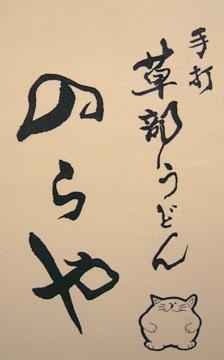 手打
草部うどん
のらや